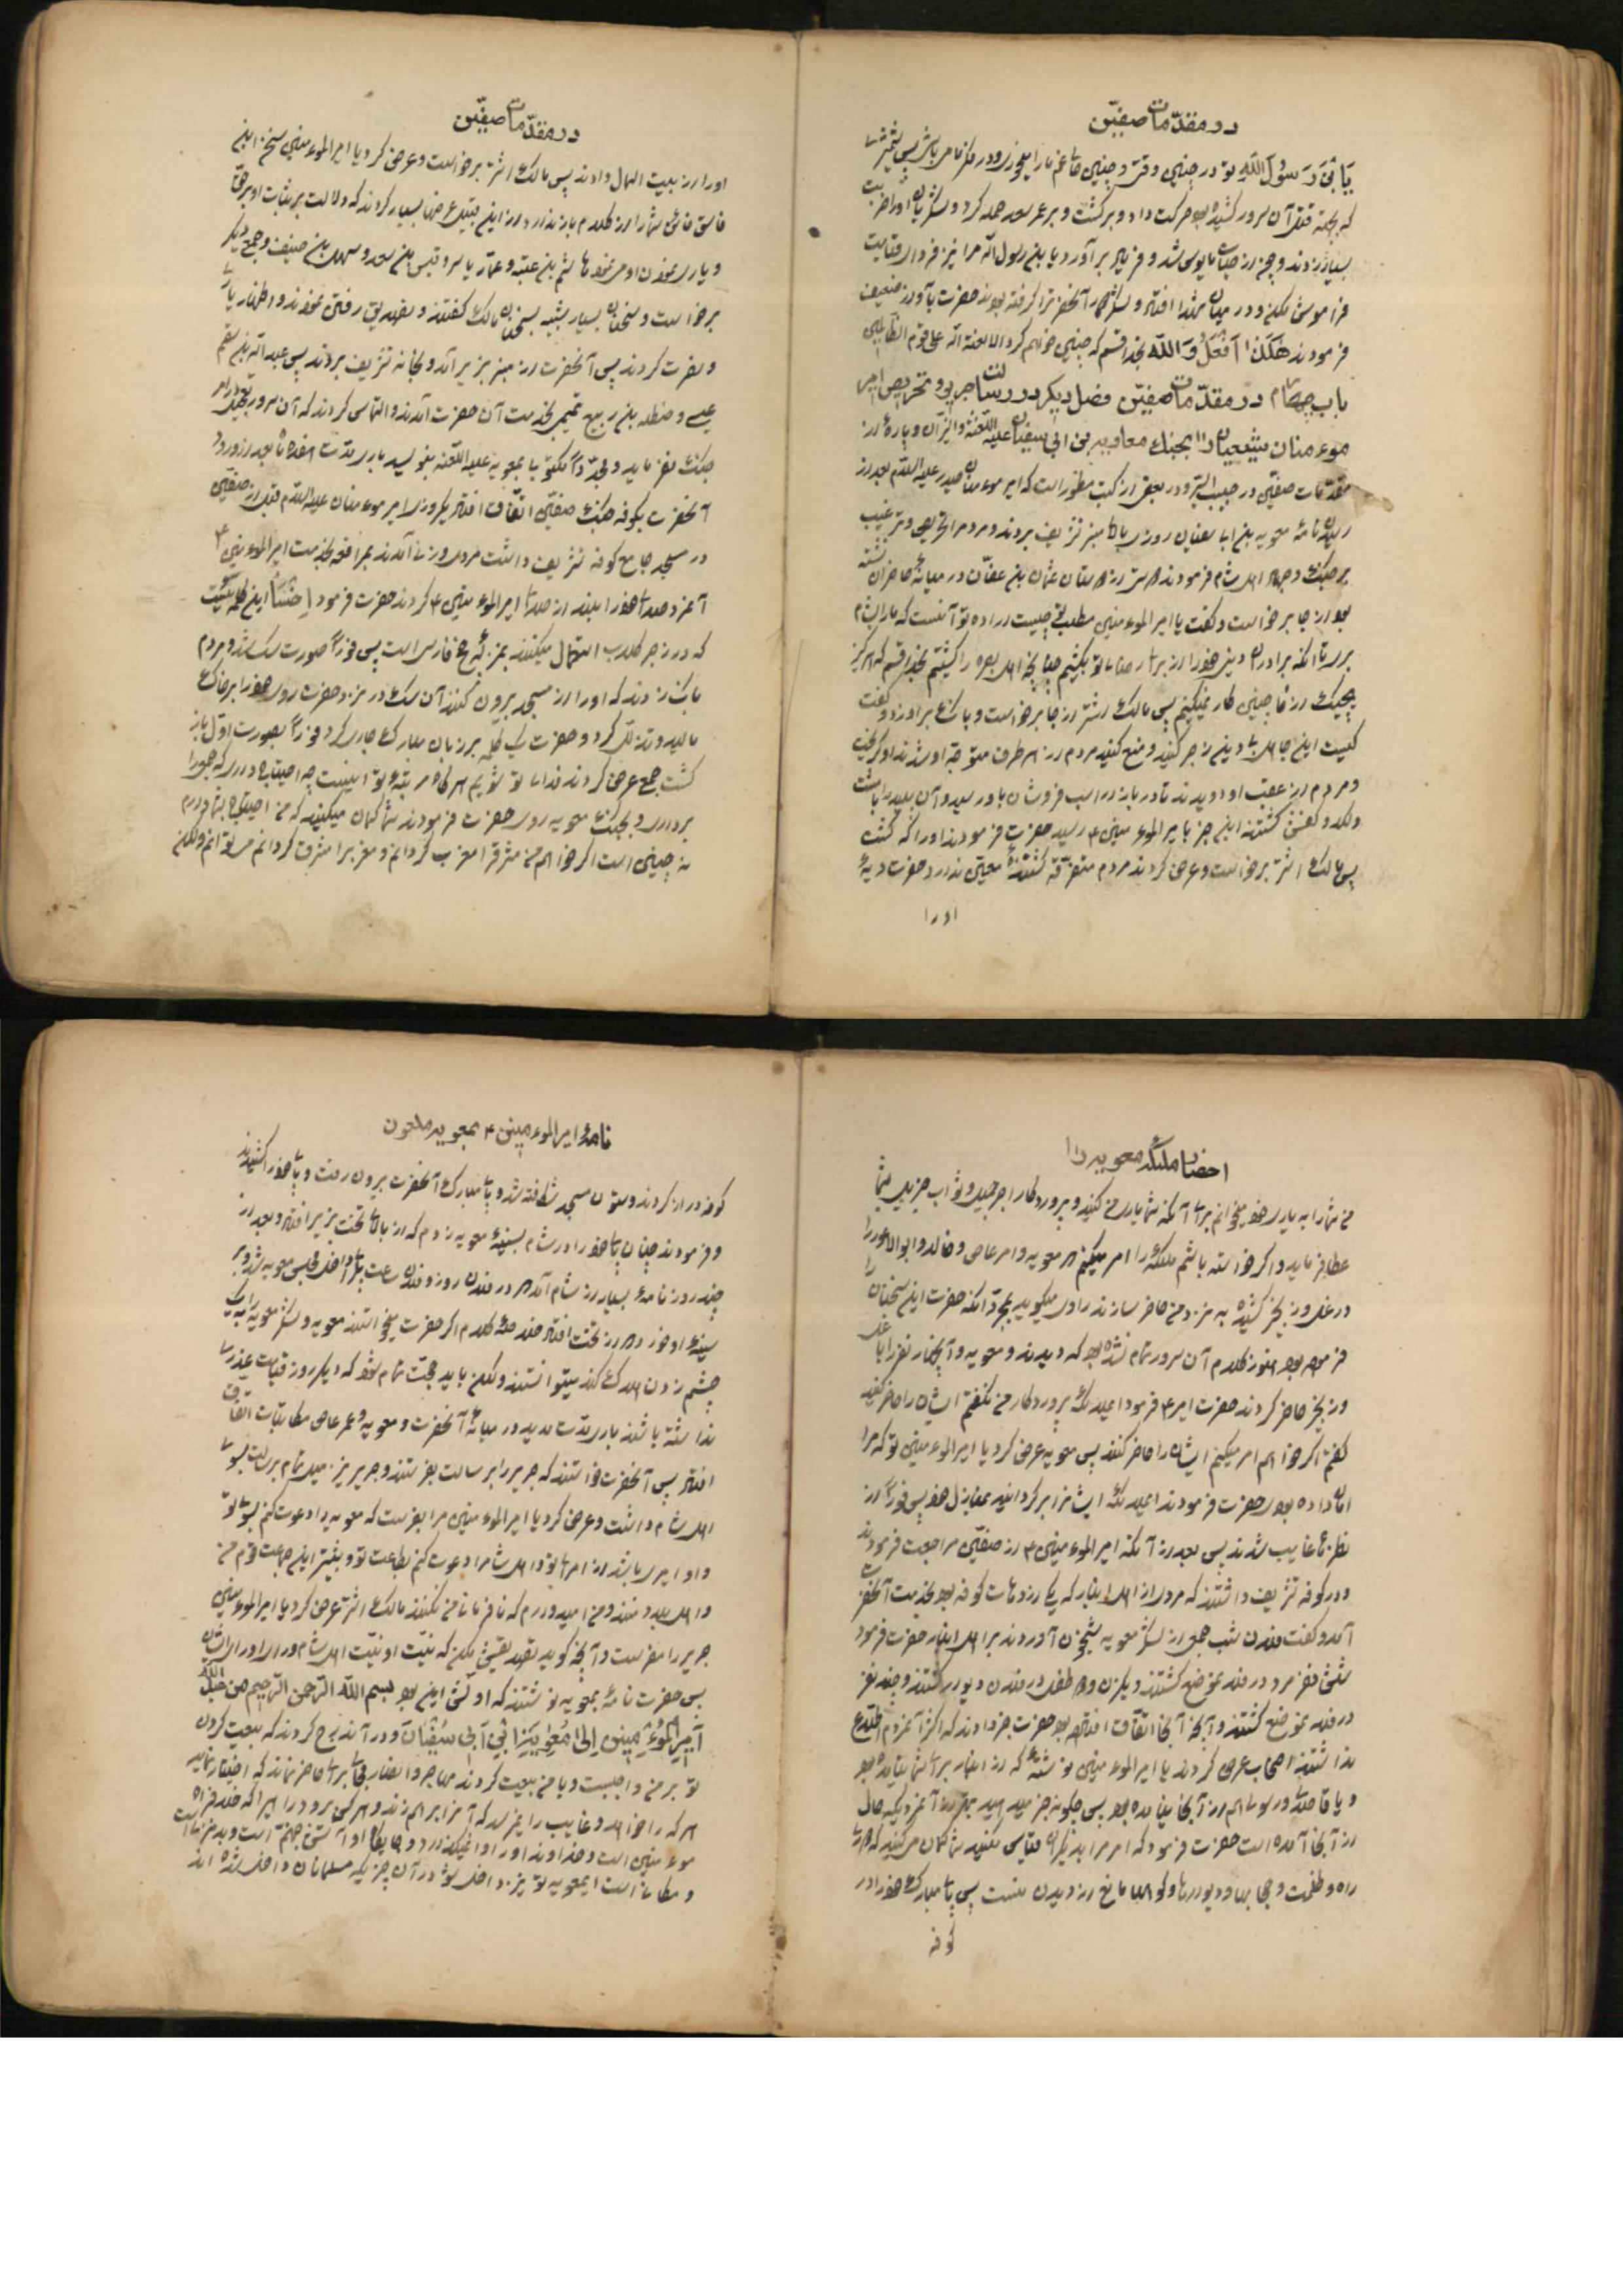 در مقدّمات صفّین
یَابْنَ رَسُولَ اللّهِ تو در چنین وقتی و چنین
که بجهة قتل آن سرور کشیده بود حرکت داد و برکشت و بر عمر سعد حمله کرد و لشکریان او را ضربت
بسیار زدند و چون از حیات مایوس شد و فریاد برآورد یابن رسول اللّه مرا نیز فردای قیامت
فراموش مکن و در میان شهدا افتاد و لشکر آنحضرترا کرفته بودند حضرت بآواز ضعیف
فرمودند هٰکَذٰا اَفْعَلُ وَ اللّه بخدا قسم که چنین خواهم کرد الا لعنة اللّه علی قوم الظّالمین
باب چهام در مقدّمات صفیّن فصل دیکر در رسالت جریر و تحریص امیر
موءمنان شیعیان را بجنك معاویه بن ابی سفیان علیه اللّعنة والنّیران و پارهٔ از
مقدّمات صفیّن در حبیب السّیر و در بعض از کتب مسطور است که امیر موءمنان حیدر علیه السّلام بعد از
رسیدن نامهٔ معویه بن ابا سفیان روزی بالا منبر تشریف بردند و مردم را تحریص و ترغیب
بر جنك و جهاد اهل شام فرمودند شخصی از دوستان عثمان بن عفّان در میانهٔ حاضران نشسته
بود از جا برخواست و کفت یا امیر الموءمنین مطلب تو چیست اراده تو آنست که ما را بشام
بری تا آنکه برادران دینی خود را از برای رضای تو بکشیم چنانچه اهل بصره را کشتیم بخدا قسم که هرکز
هیچیك از ما چنین کار نمیکنیم پس مالك اشتر از جا برخواست و بانك برادر زد و کفت
کیست این جاهل بی دین زجر کنید و منع کنید مردم از هر طرف متوجّه او شدند او کریخت
و مردم از عقب او دویدند تا در بازار اسب فروشان باو رسیدند و آن پلید را با مشت
و لکد و کفش کشتند این خبر بامیر الموءمنین ۴ رسید حضرت فرمودند او را که کشت
پس مالك اشتر برخواست و عرض کردند مردم متفرّقه کشتند کشندهٔ معیّنی ندارد حضرت دیهٔ
او را
در مقدّمات صفیّن
او را از بیت المال دادند پس مالك اشتر برخواست و عرض کرد یا امیر الموءمنین سخن این
فاسق مانع شما را از کلام باز ندارد و از این قبیل عرضها بسیار کردند که دلالت بر ثبات او بر حقّا
و یاری نمودن او می نمود هاشم بن عتبه و عمّار یاسر و قیس بن سعد و سهل بن حنیف و جمع دیکر
برخواست و سخنان بسیار شبیه بسخنان مالك کفتند و تصدیق رفتن نمودند و اظهار یاری
و نصرت کردند پس آنحضرت از منبر بزیر آمد و بخانه تشریف بردند پس عبد اللّه بن معتم
عبسی و حنظله بن ربیع تمیمی بخدمت آن حضرت آمدند و التماس کردند که آن سرور تعجیل در امر
جنك نفرماید و مجدّداً مکتوبی بمعویه علیه اللّعنه بنویسد باری مدّت هفده ماه بعد از ورود
آنحضرت بکوفه جنك صفیّن اتّفاق افتاد یکروزی امیر موءمنان علیه السّلام قبل از صفیّن
در مسجد جامع کوفه تشریف داشت مردی و زنی آمدند بمرافعه بخدمت امیر الموءمنین ۴
آنمرد صدای خود را بلند از صدای امیر الموءمنین ۴ کردند حضرت فرمود اِخْسَأ این کلمه ئیست
که در زجر کلاب استعمال میکنند بمنزلهٔ چخ فارسی است پس فوراً صورت سك شد و مردم
بانك زدند که او را از مسجد بیرون کنند آن سك در نزد حضرت روی خود را بر خاك
مالید و تذلّل کرد و حضرت یك کلمه بر زبان مبارك جاری کرد فوراً بصورت اوّل باز
کشت جمعی عرض کردند فدای تو شویم هر کاه مرتبهٔ تو اینست چه احتیاج داری که جهورا
برداری و بجنك معویه روی حضرت فرمودند شما کمان میکنید که من احتیاج بشما دارم
نه چنین است اکر خواهم من مشرقرا مغرب کردانم و مغربرا مشرق کردانم میتوانم و لکن
احضار ملائکه معویه را
من شما را به یاری خود میخوانم برای آنکه شما یاری من کنید و پروردکار اجر جمیل و ثواب جزیل بشما
عطا فرماید و اکر خواسته باشم ملائکه را امر میکنم که معویه و عمر عاص و خالد و ابوالاعور را
در غل و زنجیر کشیده به نزد من حاضر سازند راوی میکوید بمجرّد آنکه حضرت این سخنان را
فرموده بود هنوز کلام آن سرور تمام نشده بود که دیدند معویه و آنچهار نفر را با غل
و زنجیر حاضر کردند حضرت امیر ۴ فرمود ای ملائکهٔ پروردکار من نکفتم ایشان را حاضر کنید
کفتم اکر خواهم امر میکنم ایشان را حاضر کنند پس معویه عرض کرد یا امیر الموءمنین تو که مرا
امان داده بودی حضرت فرمودند ای ملائکه ایشانرا بر کردانید بمنازل خود پس فوراً از
نظرها غایب شدند پس بعد از آنکه امیر الموءمنین ۴ از صفیّن مراجعت فرمودند
و در کوفه تشریف داشتند که مردی از اهل انبار که یکی از دهات کوفه بود بخدمت آنحضرت
آمد و کفت فلان شب جمعی از لشکر معویه شبیخون آوردند بر اهل انبار حضرت فرمود
شش نفر مرد در فلان موضع کشتند و یك زن و دو طفل در فلان دیوار کشتند و چند نفر
در فلان موضع کشتند و آنچه آنجا اتّفاق افتاده بود حضرت خبر دادند که اکثر آنمردم اطّلاع
نداشتند اصحاب عرض کردند یا امیر الموءمنین نوشتهٔ که از انبار برای شما نیامده بود
و یا قاصد و رسولی هم از آنجا نیامده بود پس چکونه خبر میدهید بهتر از آنمردیکه حال
از آنجا آمده است حضرت فرمود که امر مرا بدیکران قیاس نکنید شما کمان میکنید که دوری
راه و ظلمت و حجابها و دیوارها و کوهها مانع از دیدن منست پس پای مبارك خود را در
کوفه
نامهٔ امیر الموءمنین ۴ بمعویه ملعون
کوفه دراز کردند و ستون مسجد شکافته شد و پای مبارك آنحضرت بیرون رفت و پای خود را کشیدند
و فرمودند چنان پای خود را در شام بسینهٔ معویه زدم که از بالای تخت بزیر افتاد و بعد از
چند روز نامهٔ بسیار از شام آمد که در فلان روز و فلان ساعت پائی داخل مجلس معویه شد و بر
سینهٔ او خورد که از تخت افتاد خلاصهٔ کلام اکر حضرت میخواستند معویه و لشکر معویه را بیك
چشم زدن هلاك کنند میتوانستند و لکن باید حجّت تمام شود که دیکر روز قیامت عذری
نداشته باشند باری مدّت مدید در میانهٔ آنحضرت و معویه و عمر عاص مکاتبات اتّفاق
افتاد پس آنحضرت خواستند که جریر را برسالت بفرستند و جریر نیز میل تمام برسالت بسوی
اهل شام داشت و عرض کرد یا امیر الموءمنین مرا بفرست که معویه را دعوت کنم بسوی تو
و او امیری باشد از امرای تو و اهل شامرا دعوت کنم بطاعت تو و بیشتر این جماعت قوم من
و اهل بلاد منند و من امیدوارم که نافرمانی من نکنند مالك اشتر عرض کرد یا امیر الموءمنین
جریر را مفرست و آنچه کوید تصدیقش مکن که نیّت او نیّت اهل شام و رای او رای ایشان
پس حضرت نامهٔ بمعویه نوشتند که اولّش این بود بسم اللّه الرّحمن الرّحیم من عبد اللّه
اَمیرَ الْمُوءْمِنین اِلیٰ مُعٰویَةَ ابْنِ اَبی سُفْیٰان و در آن درج کردند که بیعت کردن
تو بر من واجبست و با من بیعت کردند مهاجر و انصار
هر که را خواهد و غایب را نمیرسد که
موءمنین است و خداوند او را وا میکذارد و جایکاه او آتش جهنّم است و بد منزل است
و مکان است ای معویه تو نیز داخل شو در آن چیزیکه مسلمانان داخل شده اند